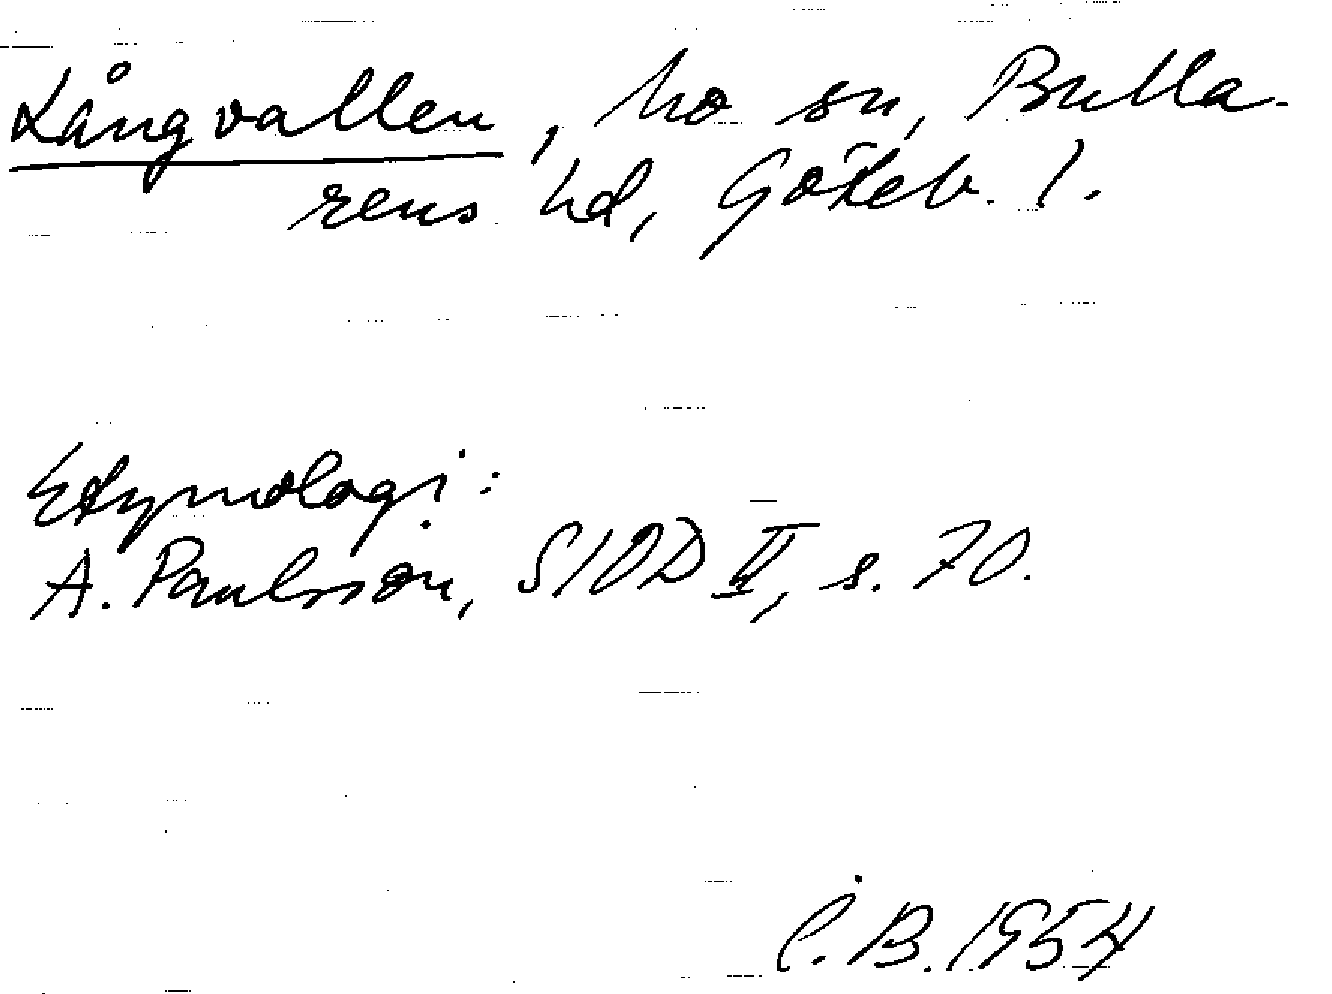 Långvallen, Mo sn, Bulla-
rens hd, Göteb. l.
Etymologi:
A. Paulsson, SIOD II, s. 70.
C. B. 1954